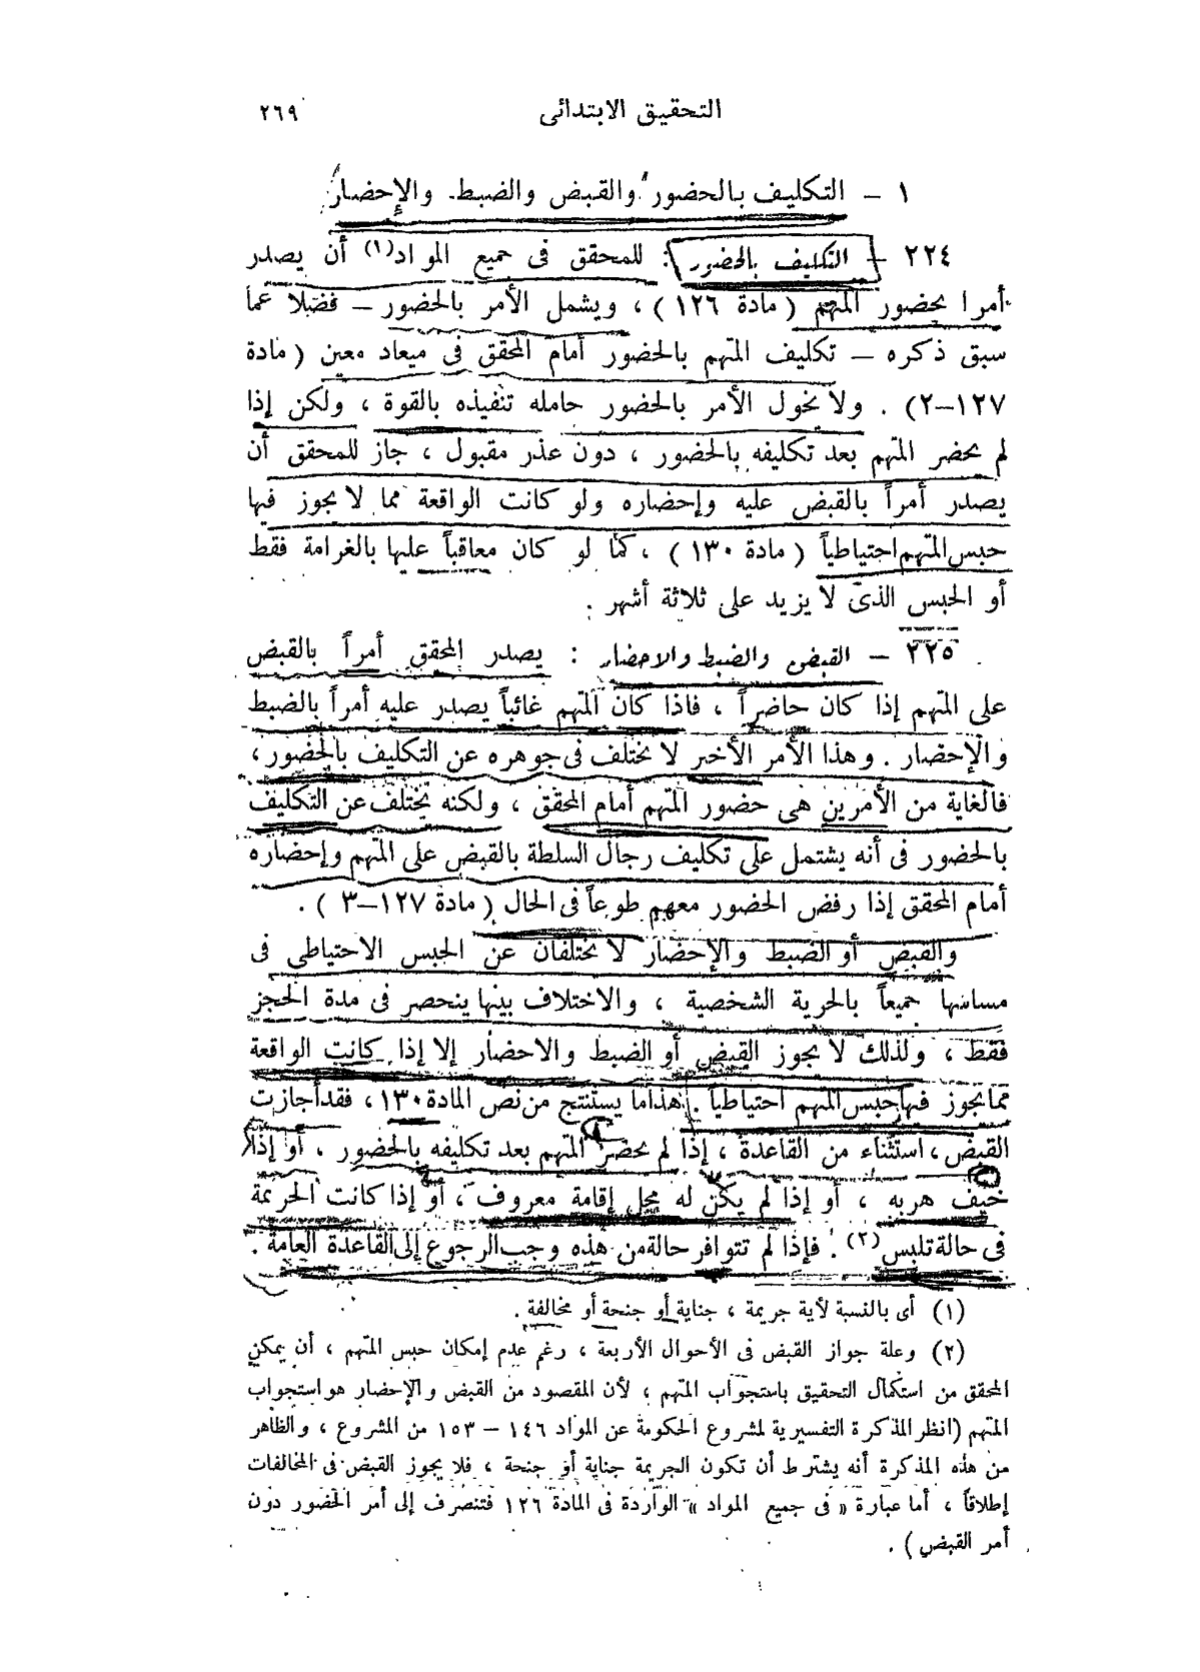 التحقيق الابتدائى ٢٦٩
١ – التكليف بالحضور والقبض والضبط والإحضار
٢٢٤ – التكليف بالحضور : للمحقق فى جميع المواد(١) أن يصدر
أمرا بحضور المتهم ( مادة ١٢٦ ) ، ويشمل الأمر بالحضور – فضلا عما
سبق ذكره – تكليف المتهم بالحضور أمام المحقق فى ميعاد معين ( مادة
١٢٧–٢) . ولا يخول الأمر بالحضور حامله تنفيذه بالقوة ، ولكن إذا
لم يحضر المتهم بعد تكليفه بالحضور ، دون عذر مقبول ، جاز للمحقق أن
يصدر أمراً بالقبض عليه وإحضاره ولو كانت الواقعة مما لا يجوز فيها
حبس المتهم احتياطياً ( مادة ١٣٠ ) ، كما لو كان معاقباً عليها بالغرامة فقط
أو الحبس الذى لا يزيد على ثلاثة أشهر .
٢٢٥ – القبض والضبط والاحضار : يصدر المحقق أمراً بالقبض
على المتهم إذا كان حاضراً ، فاذا كان المتهم غائباً يصدر عليه أمراً بالضبط
والإحضار . وهذا الأمر الأخير لا يختلف فى جوهره عن التكليف بالحضور ،
فالغاية من الأمرين هى حضور المتهم أمام المحقق ، ولكنه يختلف عن التكليف
بالحضور فى أنه يشتمل على تكليف رجال السلطة بالقبض على المتهم وإحضاره
أمام المحقق إذا رفض الحضور معهم طوعاً فى الحال ( مادة ١٢٧–٣ ) .
والقبض أو الضبط والإحضار لا يختلفان عن الحبس الاحتياطى فى
مساسها جميعاً بالحرية الشخصية ، والاختلاف بينها ينحصر فى مدة الحجز
فقط ، ولذلك لا يجوز القبض أو الضبط والاحضار إلا إذا كانت الواقعة
مما يجوز فيها حبس المتهم احتياطياً . هذا ما يستنتج من نص المادة ١٣٠ ، فقد أجازت
القبض ، استثناء من القاعدة ، إذا لم يحضر المتهم بعد تكليفه بالحضور ، أو إذا
خيف هربه ، أو إذا لم يكن له محل إقامة معروف ، أو إذا كانت الجريمة
فى حالة تلبس(٢) . فإذا لم تتوافر حالة من هذه وجب الرجوع إلى القاعدة العامة .
(١) أى بالنسبة لأية جريمة ، جناية أو جنحة أو مخالفة .
(٢) وعلة جواز القبض فى الأحوال الأربعة ، رغم عدم إمكان حبس المتهم ، أن يمكن
المحقق من استكمال التحقيق باستجواب المتهم ؛ لأن المقصود من القبض والإحضار هو استجواب
المتهم (انظر المذكرة التفسيرية لمشروع الحكومة عن المواد ١٤٦ – ١٥٣ من المشروع ، والظاهر
من هذه المذكرة أنه يشترط أن تكون الجريمة جناية أو جنحة ، فلا يجوز القبض فى المخالفات
إطلاقاً ، أما عبارة « فى جميع المواد » الواردة فى المادة ١٢٦ فتنصرف إلى أمر الحضور دون
أمر القبض ) .